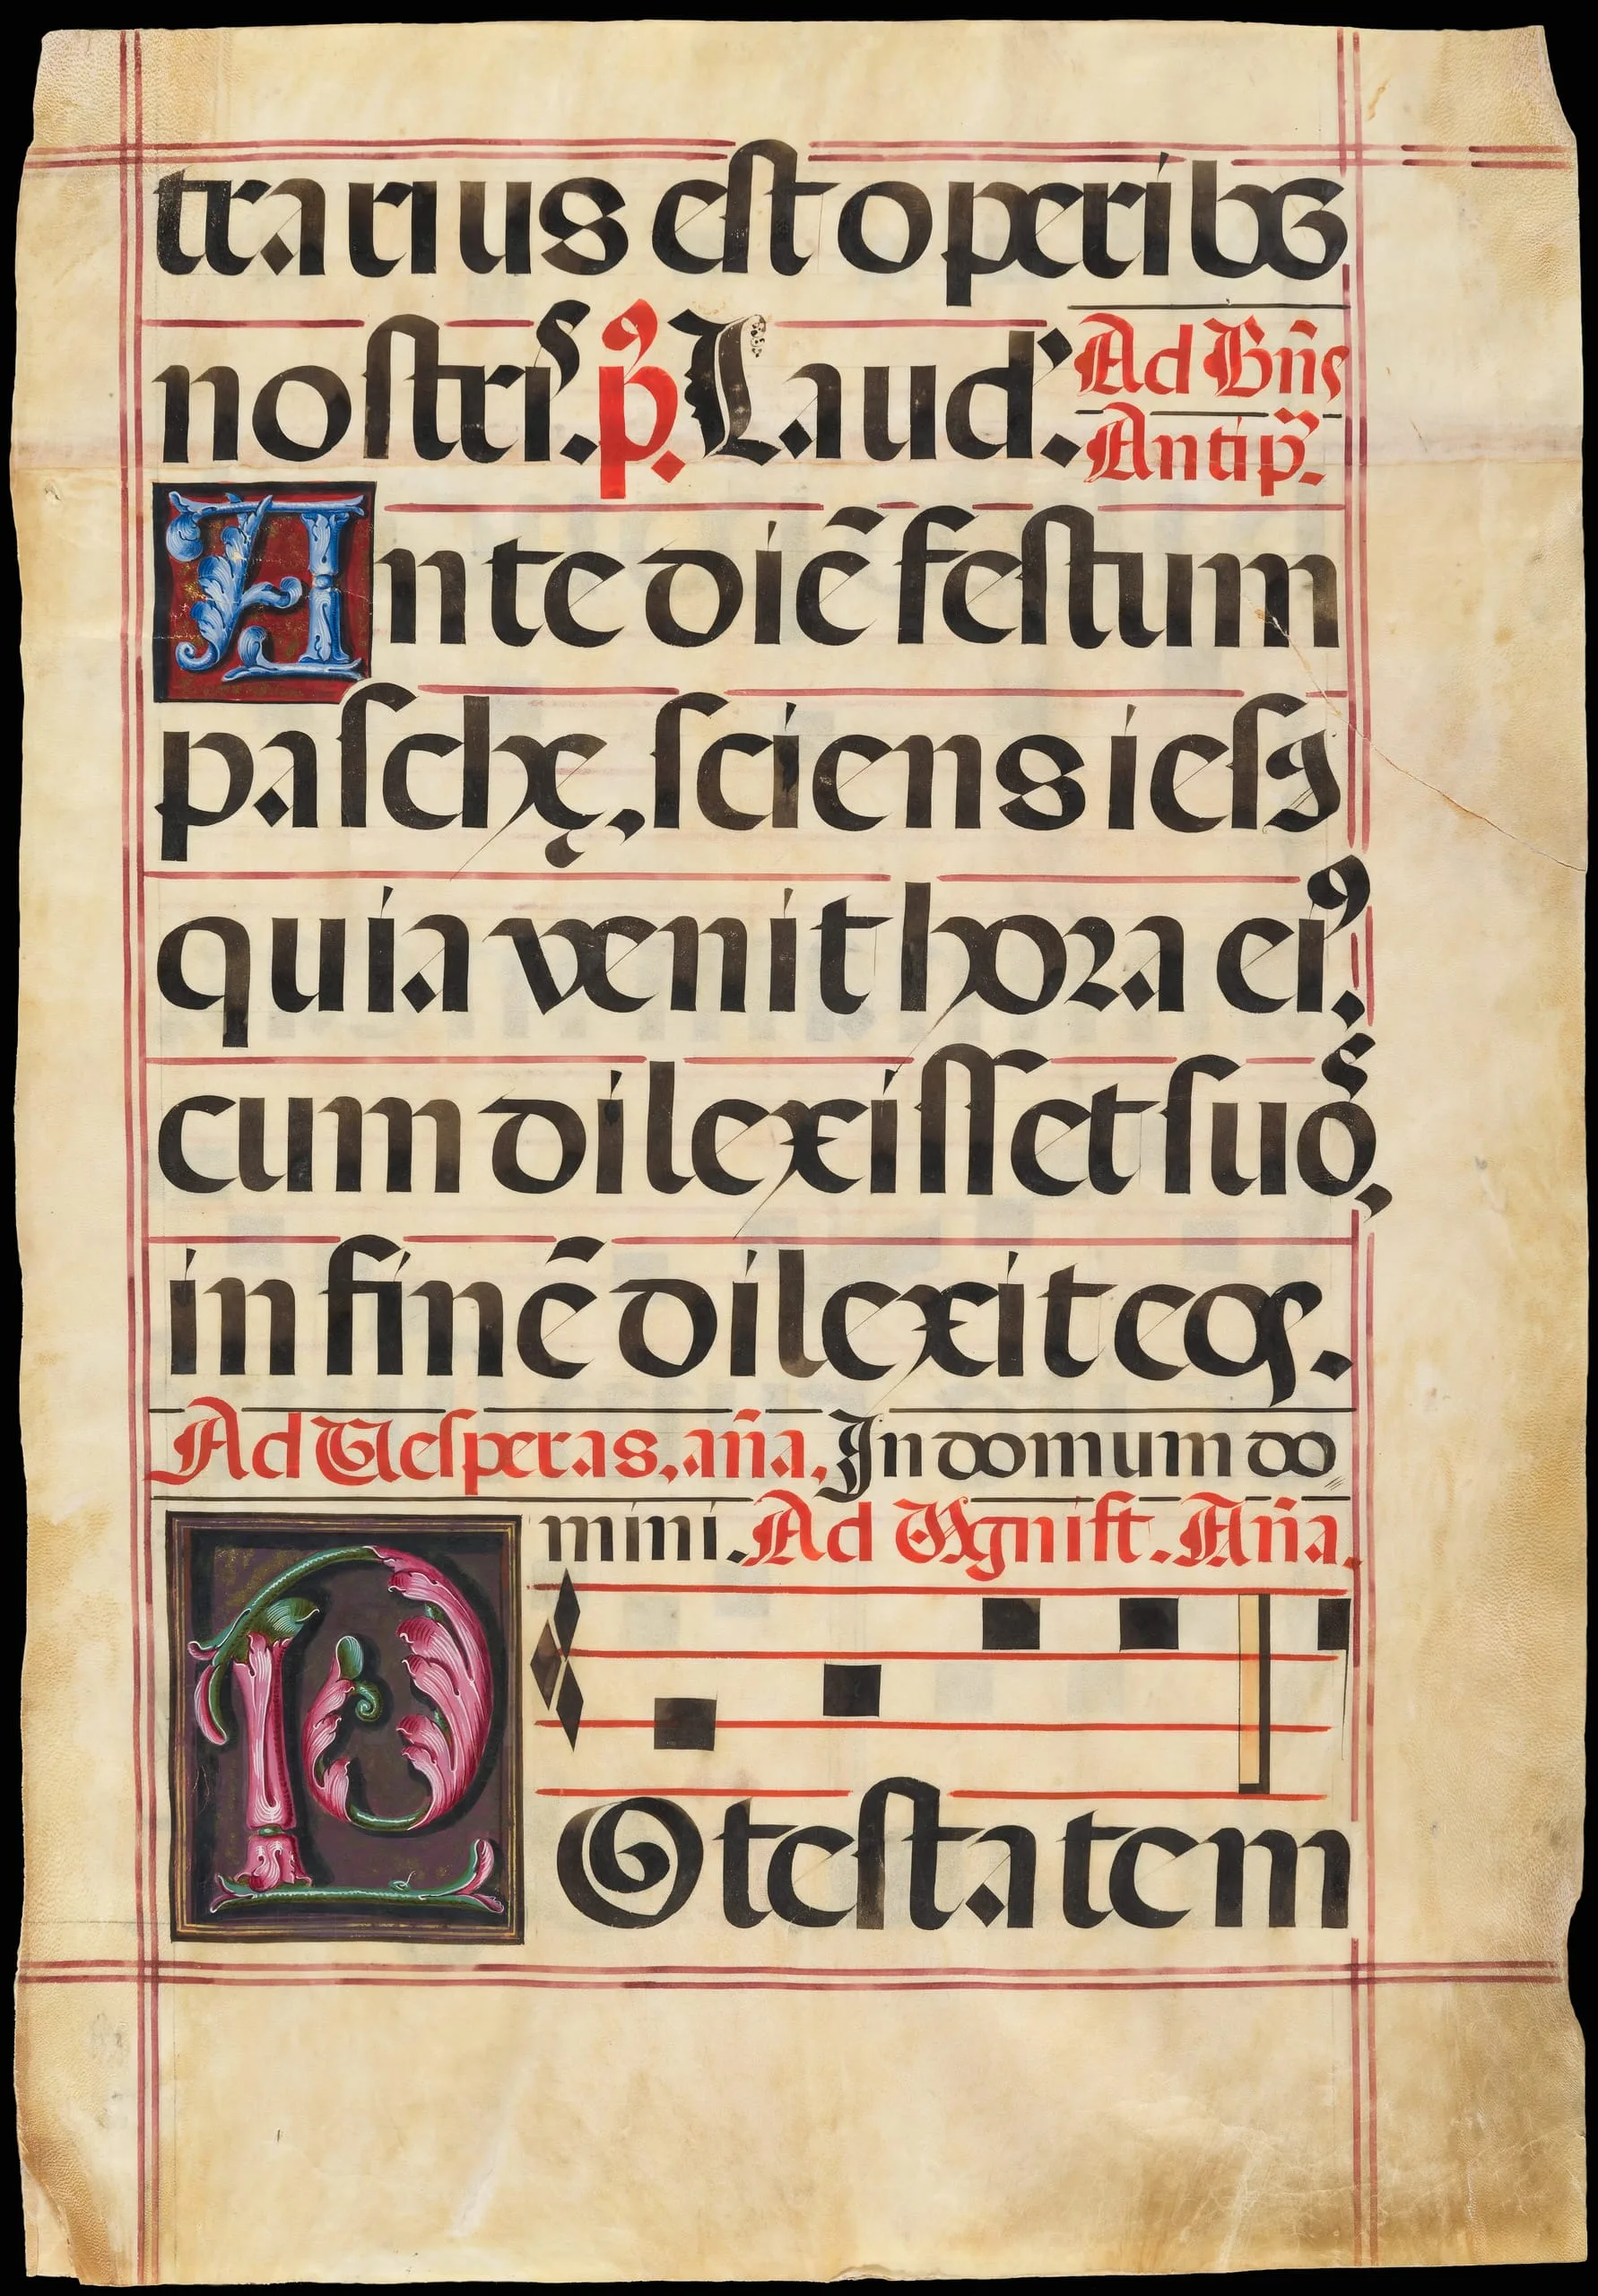 trarius est operibꝯ
nostrˢ. p̉. Laud'. Ad Bn̄s
Antip̃.
Ante diē festum
paschę, sciens iesꝯ
quia venit hora eiꝰ.
cum dilexisset suoˢ,
in finē dilexit eos.
Ad Vesperas, an̄a, In domum do
mini. Ad Magnift. An̄a.
POtestatem